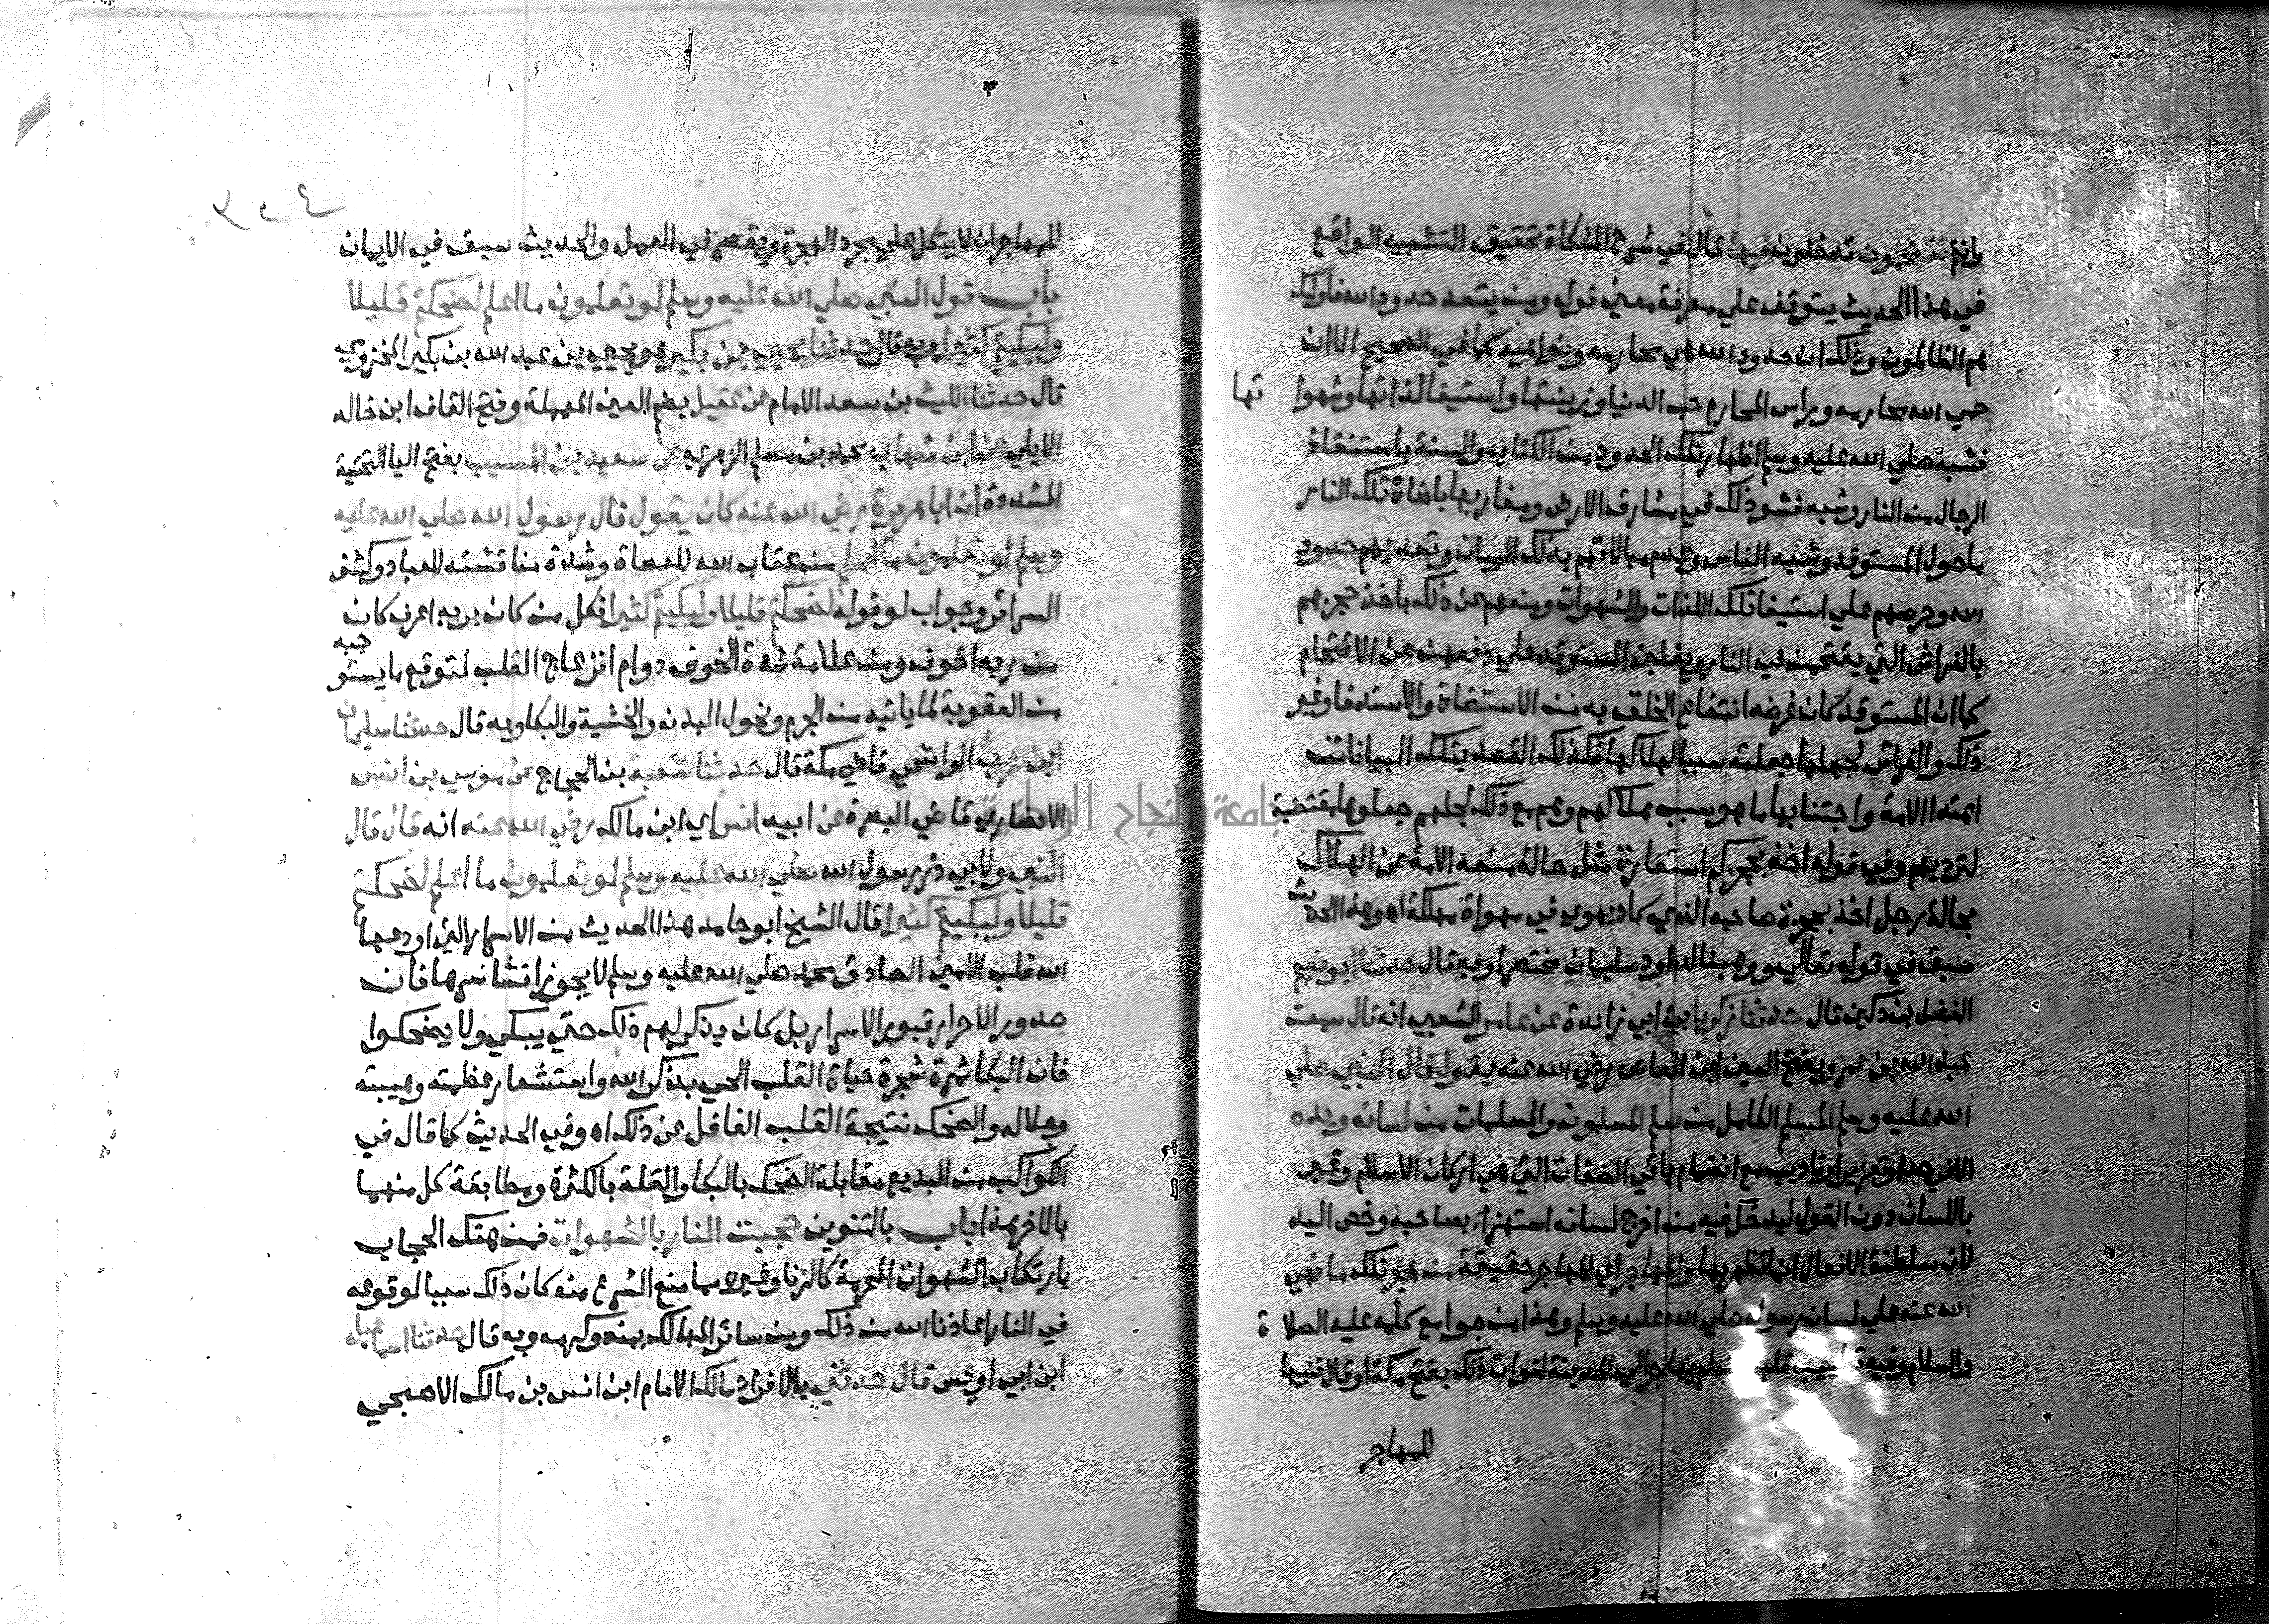 وانتم تقتحمون تدخلون فيها قال في شرح المشكاة تحقيق التشبيه الواقع
في هذا الحديث يتوقف على معرفة معنى قوله ومن يتعد حدود الله فاولئك
هم الظالمون وذلك ان حدود الله هي محارمه ونواهيه كما في الصحيح الا ان
حمي الله محارمه وراس المحارم حب الدنيا وزينتها واستيفا لذاتها وشهواتها
فشبه صلي الله عليه وسلم اظهار تلك الحدود من الكتاب والسنة باستنقاذ
الرجال من النار وشبه فشو ذلك في مشارق الارض ومغاربها باضاة تلك النار
ما حول المستوقد وشبه الناس وعدم مبالاتهم بذلك البيان وتعديهم حدود
الله وحرصهم علي استيفا تلك اللذات والشهوات ومنعهم عن ذلك باخذ حجزهم
بالفراش التي يقتحمن في النار ويغلبن المستوقد علي دفعهن عن الاقتحام
كما ان المستوقد كان غرضه انتفاع الخلق به من الاستضاة والاستدفا وغير
ذلك والفراش لجهلها جعلته سببا لهلاكها فكذلك القصد بتلك البيانات
اهتداالامة واجتنابها ما هو سبب هلاكهم وهم مع ذلك لجهلهم جعلوها مقتضية
لترديهم وفي قوله اخذ بحجزكم استعارة مثل حالة منعه الامة عن الهلاك
بحالة رجل اخذ بحجزة صاحبه الذي كاد يهوي في مهواة مهلكة اه وهذا الحديث
سبق في قوله تعالي ووهبنا لداود سليمان مختصرا وبه قال حدثنا ابو نعيم
الفضل بن دكين قال حدثنا زكريا بن ابي زايدة عن عامر الشعبي انه قال سمعت
عبد الله بن عمرو بفتح العين ابن العاص رضي الله عنه يقول قال النبي صلي
الله عليه وسلم المسلم الكامل من سلم المسلمون والمسلمات من لسانه ويده
الا في حد او تعزير او تاديب مع انضمام باقي الصفات التي هي اركان الاسلام وعبر
باللسان دون القول ليدخل فيه من اخرج لسانه استهزا بصاحبه وخص اليد
لان سلطنة الافعال انما تظهر بها والمهاجر اي المهاجر حقيقة من هجر ترك ما نهي
الله عنه علي لسان رسوله صلي الله عليه وسلم وهذا من جوامع كلمه عليه الصلاة
والسلام وفيه تطييب قلب من لم يهاجر الي المدينة لفوات ذلك بفتح مكة او قال تنبيها
للمهاجر
للمهاجر ان لا يتكل علي مجرد الهجرة ويقصر في العمل والحديث سبق في الايمان
باب قول النبي صلي الله عليه وسلم لو تعلمون ما اعلم لضحكتم قليلا
ولبكيتم كثيرا وبه قال حدثنا يحيي بن بكير هو يحيي بن عبد الله بن بكير المخزومي
قال حدثنا الليث بن سعد الامام عن عقيل بضم العين المهملة وفتح القاف ابن خالد
الايلي عن ابن شهاب محمد بن مسلم الزهري عن سعيد بن المسيب بفتح اليا التحتية
المشددة ان ابا هريرة رضي الله عنه كان يقول قال رسول الله صلي الله عليه
وسلم لو تعلمون ما اعلم من عقاب الله للعصاة وشدة مناقشته للعباد وكشف
السرائر وجواب لو قوله لضحكتم قليلا ولبكيتم كثيرا فكل من كان بربه اعرف كان
من ربه اخوف ومن علامة شدة الخوف دوام انزعاج القلب لتوقع ما يستوجبه
من العقوبة لما ياتيه من الجرم ونحول البدن والخشية والبكا وبه قال حدثنا سليمان
ابن حرب الواشحي قاضي مكة قال حدثنا شعبة بن الحجاج عن موسي بن انس
الانصاري قاضي البصرة عن ابيه انس اي ابن مالك رضي الله عنه انه قال قال
النبي ولابي ذر رسول الله صلي الله عليه وسلم لو تعلمون ما اعلم لضحكتم
قليلا ولبكيتم كثيرا قال الشيخ ابو حامد هذا الحديث من الاسرار التي اودعها
الله قلب الامين الصادق محمد صلي الله عليه وسلم لا يجوز افشا سرها فان
صدور الاحرار قبور الاسرار بل كان يذكر لهم ذلك حتي يبكي ولا يضحكوا
فان البكا ثمرة شجرة حياة القلب الحي بذكر الله واستشعار عظمته وهيبته
وجلاله والضحك نتيجة القلب الغافل عن ذلك اه وفي الحديث كما قال في
الكواكب من البديع مقابلة الضحك بالبكا والقلة بالكثرة ومطابقة كل منهما
بالاخر هذا باب بالتنوين حجبت النار بالشهوات فمن هتك الحجاب
بارتكاب الشهوات المحرمة كالزنا وغيره مما منع الشرع منه كان ذلك سببا لوقوعه
في النار اعاذنا الله من ذلك ومن سائر المهالك بمنه وكرمه وبه قال حدثنا اسماعيل
ابن ابي اويس قال حدثني بالافراد مالك الامام ابن انس بن مالك الاصبحي
جامعة النجاح الوطنية